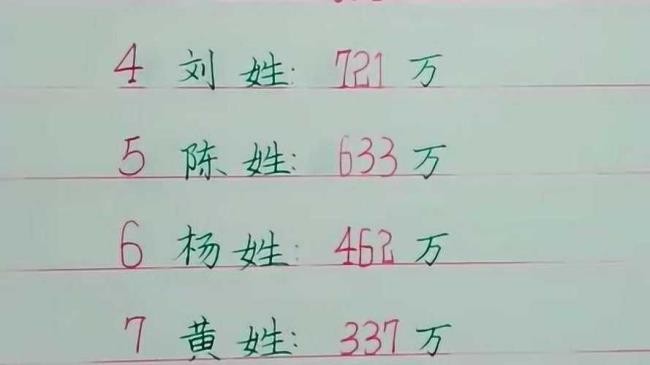 4 刘姓: 721万
5 陈姓: 633万
6 杨姓: 462万
7 黄姓: 337万